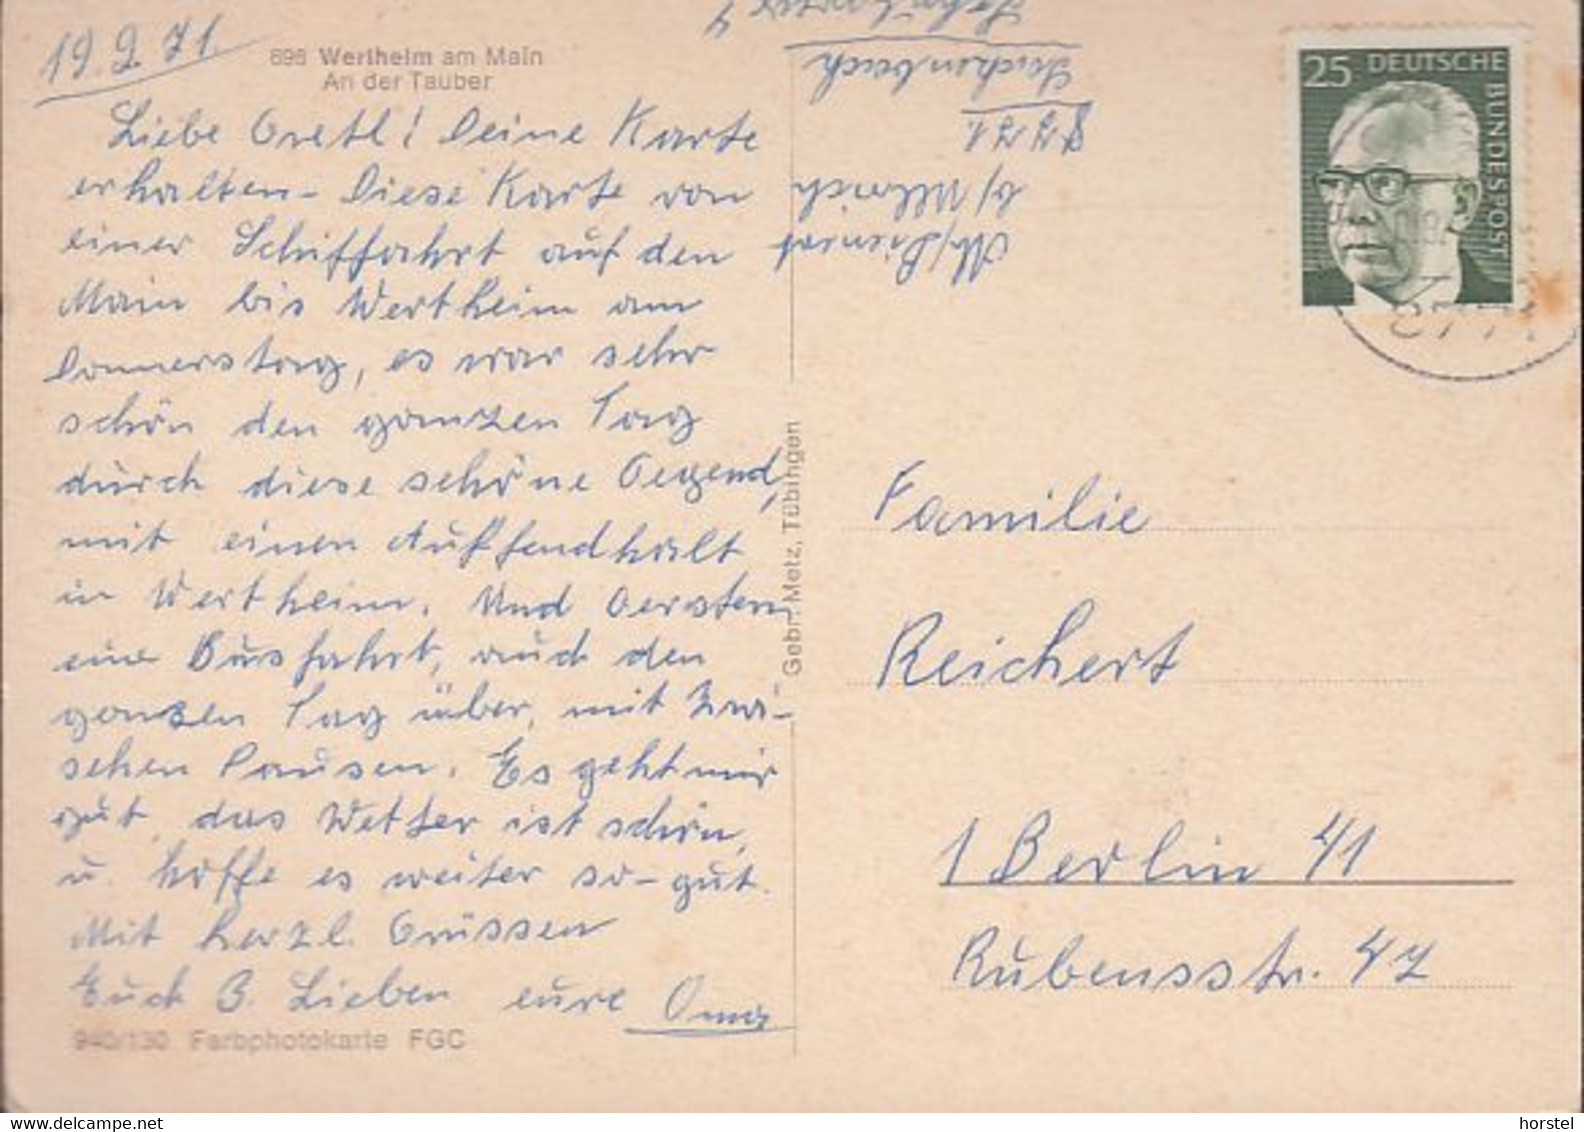 19.9.71.
898 Wertheim am Main
An der Tauber
Liebe Gretl! Deine Karte
erhalten - Diese Karte von
einer Schiffahrt auf den
Main bis Wertheim am
Donnerstag, es war sehr
schön den ganzen Tag
durch diese schöne Gegend,
mit einen Auffendhalt
in Wertheim. Und Gersten
eine Busfahrt, auch den
ganzen Tag über, mit Zwi-
schen Pausen. Es geht mir
gut, das Wetter ist schön,
u. hoffe es weiter so - gut.
Mit herzl. Grüssen
Euch 3. Lieben eure Oma
940/130 Farbphotokarte FGC
Gebr. Metz, Tübingen
8771
b/
25 DEUTSCHE BUNDESPOST
877
Familie
Reichert
1 Berlin 41
Rubensstr. 47